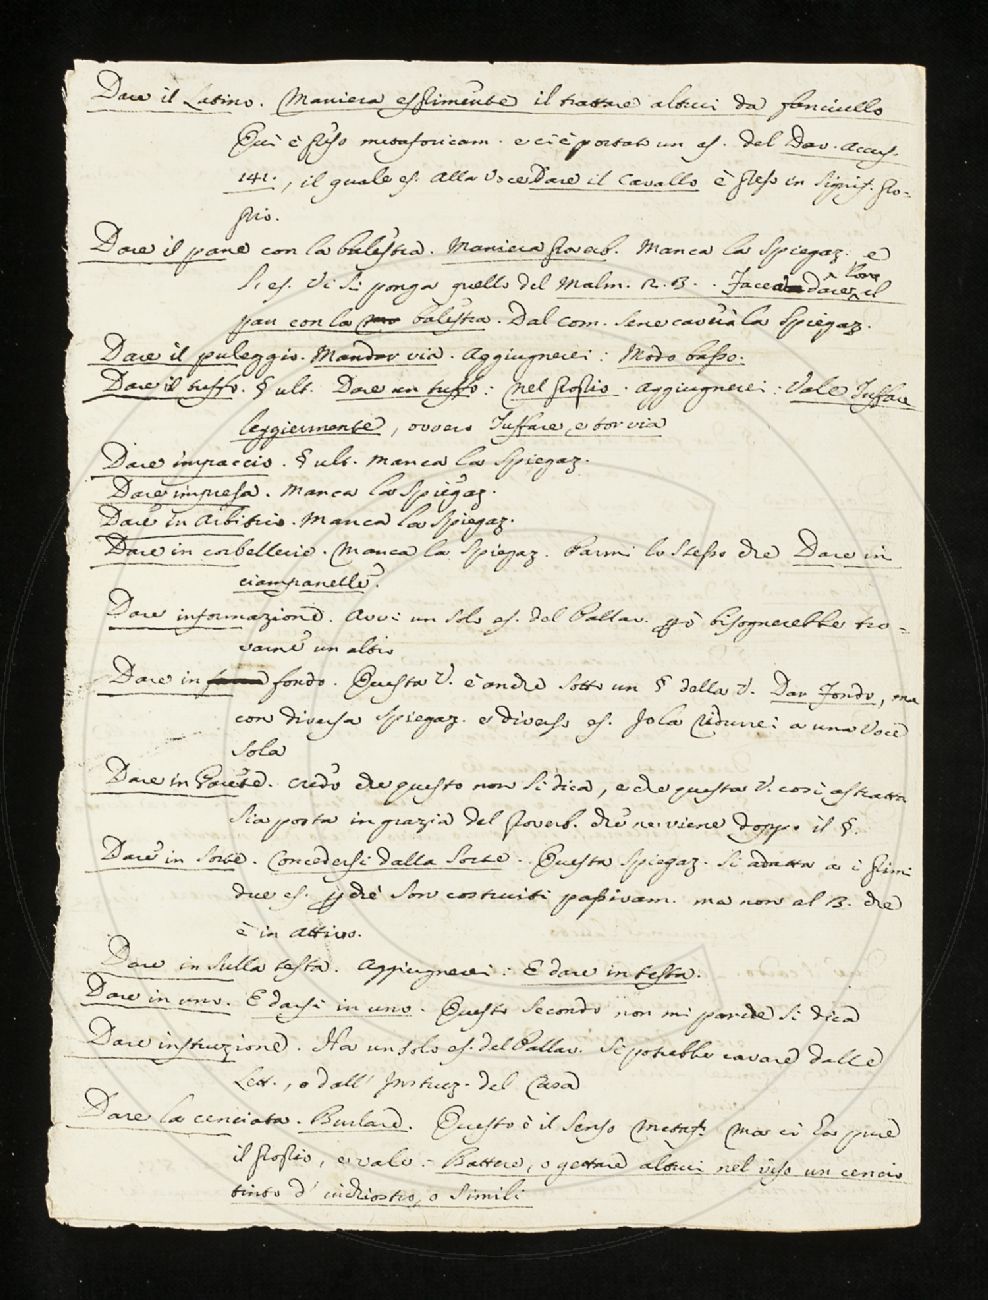 Dare il Latino. Maniera esprimente il trattare altrui da fanciullo
Qui è preso metaforicam. e ci è portato un es. del Dav. Accus.
141., il quale es. alla voce Dare il Cavallo è preso in signif. pro-
prio.
Dare il pane con la balestra. Maniera proverb. Manca la spiegaz. e
li es. Vi si ponga quello del Malm. 2. B. . Facea dare loro il
pan con la balestra. Dal Com. se ne caverà la spiegaz.
Dare il puleggio. Mandar via. Aggiugnerei: Modo basso.
Dare il tuffo. § ult. Dare un tuffo: nel proprio. Aggiugnerei: Vale Tuffare
leggiermente, ovvero Tuffare, e tor via
Dare impaccio. § ult. Manca la spiegaz.
Dare impresa. Manca la spiegaz.
Dare in arbitrio. Manca la spiegaz.
Dare in corbellerie. Manca la spiegaz. Parmi lo stesso che Dare in
ciampanelle.
Dare informazione. Avvi un solo es. del Pallav. pò bisognerebbe tro-
varne un altro
Dare in fondo. Questa V. è anche sotto un § della V. Dar fondo, ma
con diversa spiegaz. e diverso es. Io la ridurrei a una voce
sola
Dare in . Credo che questo non si dica, e che questa V. così astratta
sia posta in grazia del proverb. che ne viene doppo il §.
Dare in sorte. Concedersi dalla sorte. Questa spiegaz. si adatta a i primi
due es. pchè son costruiti passivam. ma non al B. che
è in attivo.
Dare in sulla testa. Aggiugnerei: E dare in testa.
Dare in uno. E darsi in uno. Questo secondo non mi pare che si dica
Dare istruzione. Ha un solo es. del Pallav. Si potrebbe cavare dalle
Lett., o dall' Instruz. del Casa
Dare la cenciata. Burlare. Questo è il senso metaf. Ma ci ha pure
il proprio, e vale: Battere, o gettare altrui nel viso un cencio
tinto d' inchiostro, o simili